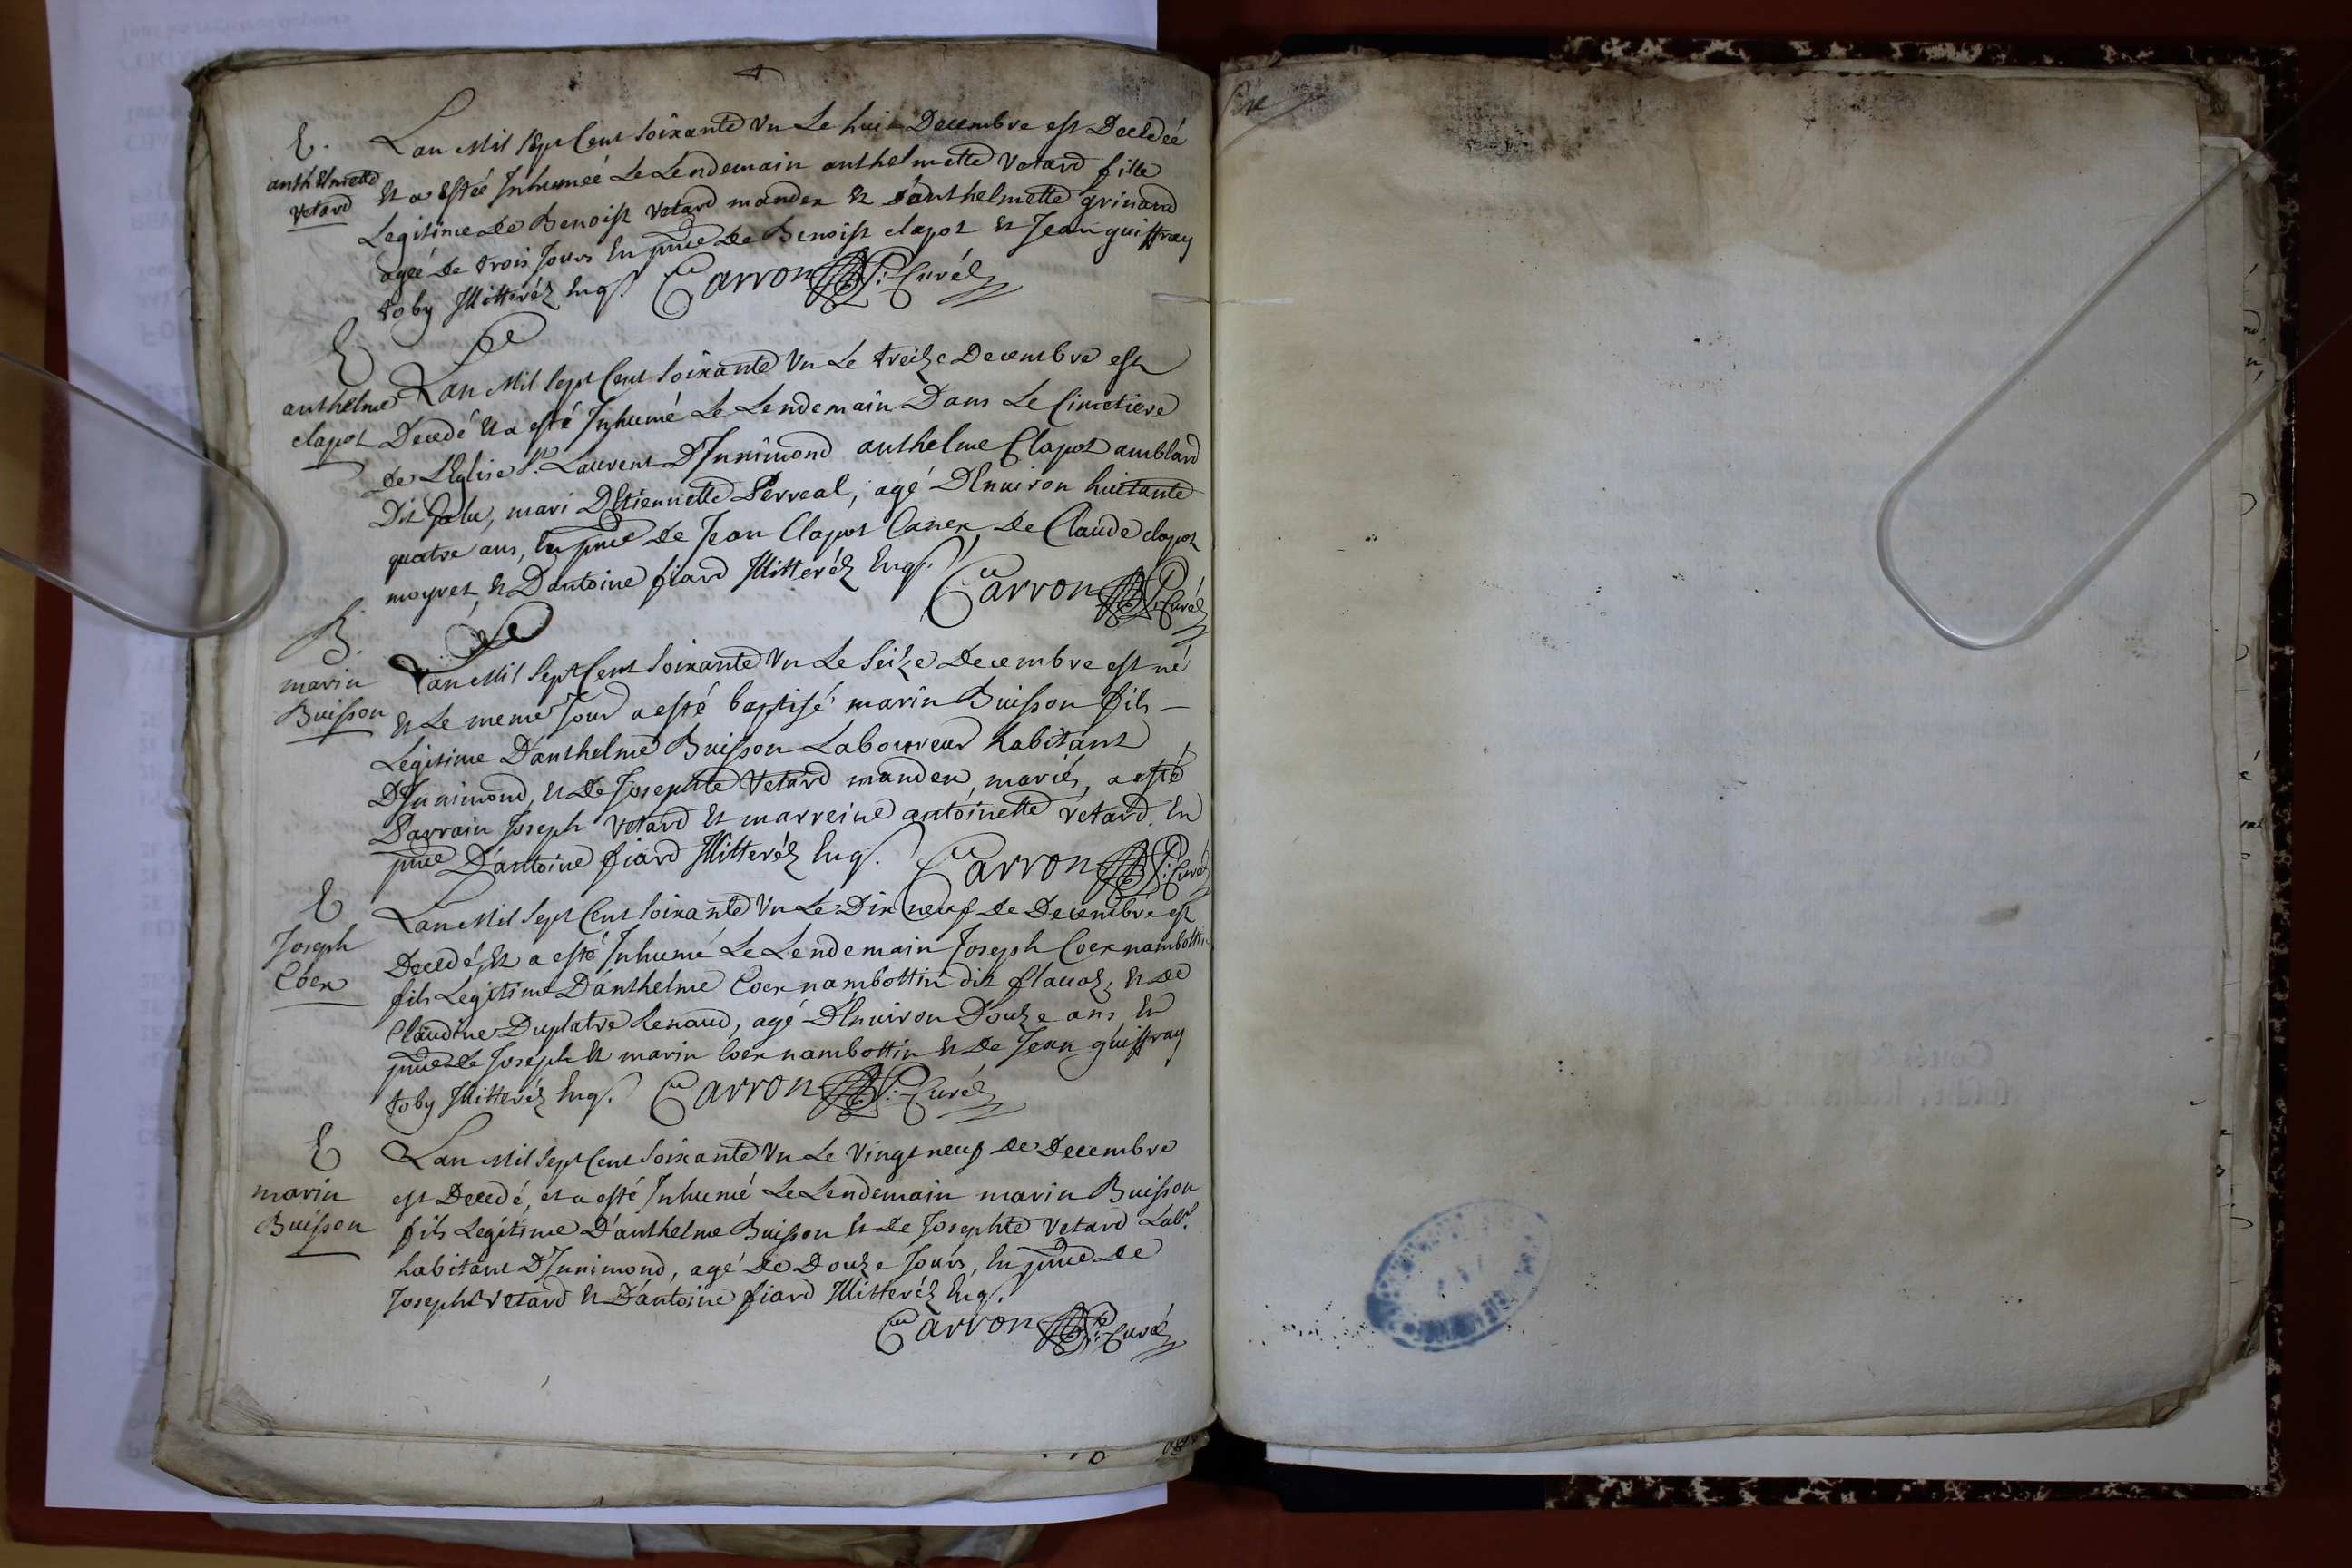 E.
anthelmette
Vetard
Lan Mil Sept Cent Soixante Vn Le huit Decembre est Decedeé
Et a Estée Inhumeé Le Lendemain anthelmette Vetard fille
Legitime De Benoist Vetard manden Et d'anthelmette grinand
ageé De trois Jours En pnce De Benoist clapot Et Jean guiffray
toby Illitteréz Enqs. Carron Curé
E
anthelme
clapot
Lan Mil Sept Cent Soixante Vn Le treize Decembre est
Decedé Et a esté Inhumé Le Lendemain Dans Le Cimetiere
de L'Eglise St. Laurent D'Innimond anthelme Clapot amblard
Dit Jolu, mari D'Etiennette Perreal, agé D'Enuiron huittante
quatre ans, En pnce De Jean Clapot Caner, De Claude clapot
moyret, Et D'antoine fiard Illitteréz Enqs. Carron Curé
B.
marin
Buisson
Lan Mil Sept Cent Soixante Vn Le Seize Decembre est né
Et Le meme Jour a esté baptisé marin Buisson fils
Legitime D'anthelme Buisson Laboureur habitant
D'Innimond, Et De Josephte Vetard manden, mariés, a esté
Parrain Joseph Vetard Et marreine antoinette Vetard. En
pnce D'antoine fiard Illitteréz Enqs. Carron Curé
E
Joseph
Coex
Lan Mil Sept Cent Soixante Vn Le Dix neuf De Decembre est
Decedé, Et a esté Inhumé Le Lendemain Joseph Coex nambottin
fils Legitime D'anthelme Coex nambottin dit flauoz, Et De
Claudine Duplatre Renaud, agé D'Enuiron Douze ans, En
pnce De Joseph Et marin Coex nambottin Et De Jean guiffray
toby Illitteréz Enqs. Carron Curé
E
marin
Buisson
Lan Mil Sept Cent Soixante Vn Le Vingt neuf De Decembre
est Decedé, et a esté Inhumé Le Lendemain marin Buisson
fils Legitime D'anthelme Buisson Et De Josephte Vetard Labr.
habitant D'Innimond, agé De Douze Jours, En pnce De
Joseph Vetard Et D'antoine fiard Illitteréz Enqs.
Carron Curé